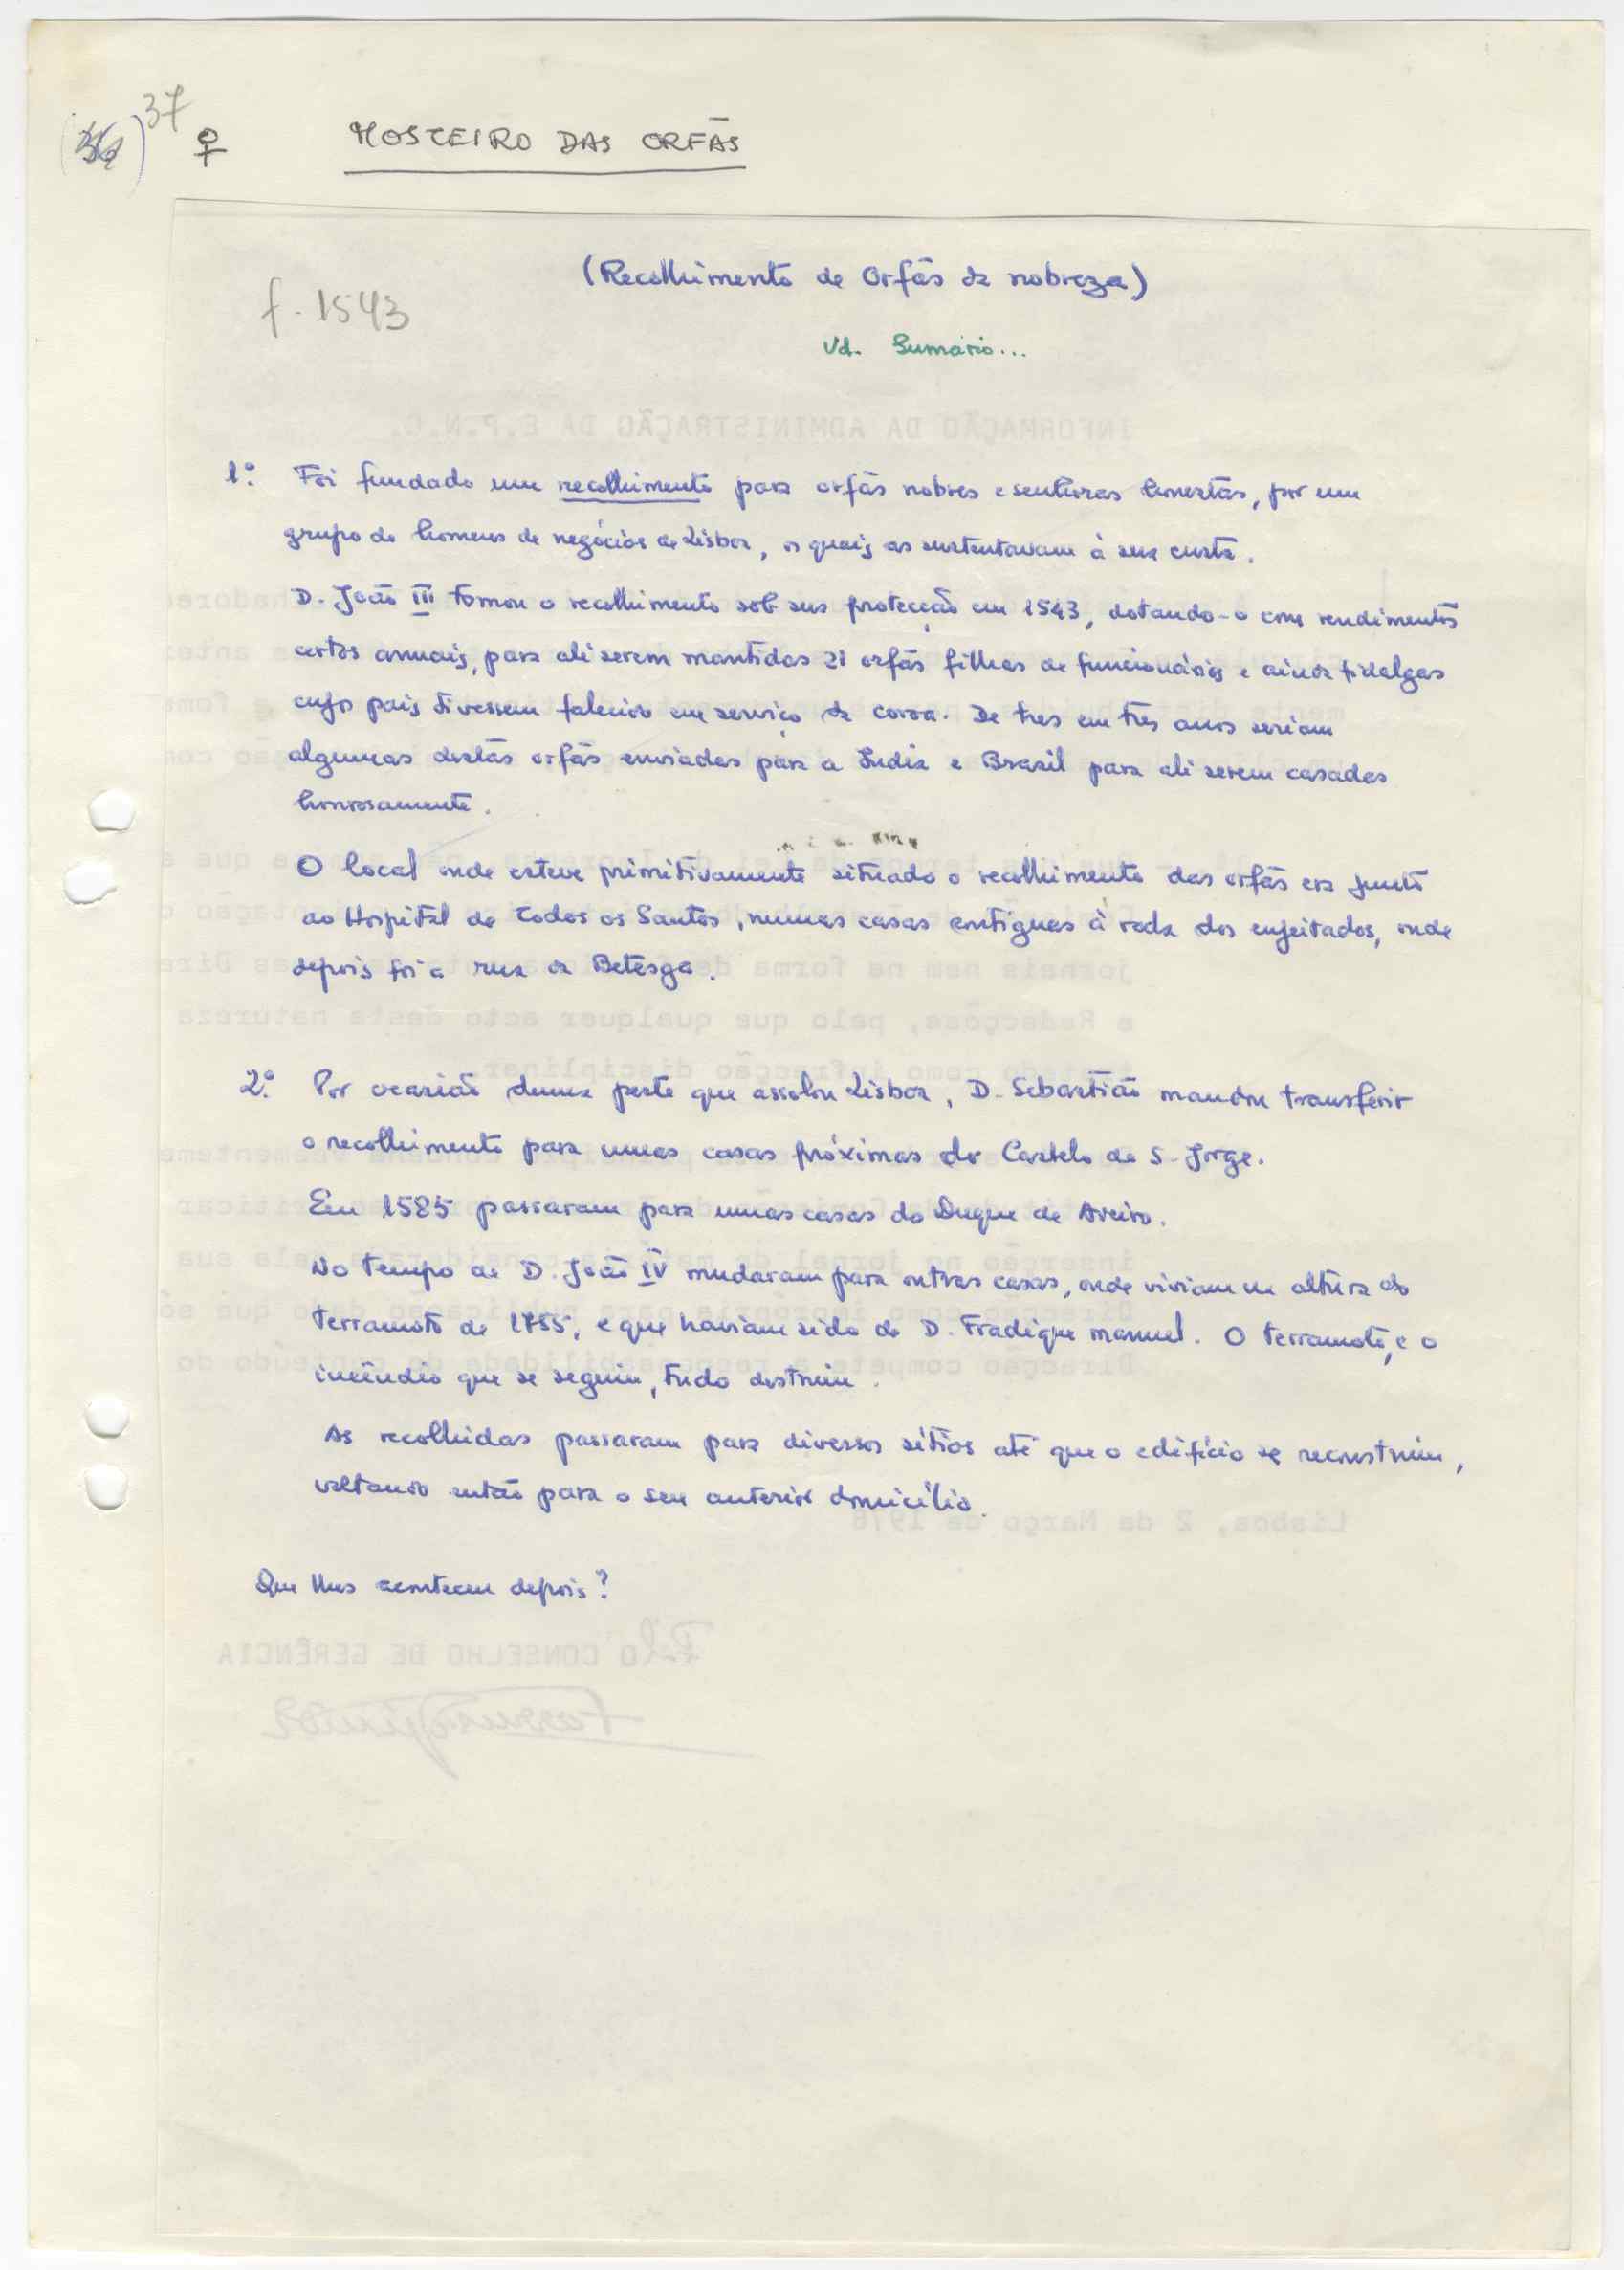 37
(36) ♀ MOSTEIRO DAS ORFÃS
(Recolhimento de Orfãs da nobreza)
f. 1543
Vd. Sumário...
1º. Foi fundado um recolhimento para orfãs nobres e senhoras honestas, por um
grupo de homens de negócios de Lisboa, os quais as sustentavam à sua custa.
D. João III tomou o recolhimento sob sua protecção em 1543, dotando-o com rendimentos
certos anuais, para ali serem mantidas 21 orfãs filhas de funcionários e ainda fidalgas
cujos pais tivessem falecido em serviço da coroa. De tres em três anos seriam
algumas destas orfãs enviadas para a India e Brasil para ali serem casadas
honrosamente.
O local onde esteve primitivamente situado o recolhimento das orfãs era junto
ao Hospital de Todos os Santos, numas casas antigas à roda dos enjeitados, onde
depois foi a rua da Betesga.
2º. Por ocasião duma peste que assolou Lisboa, D. Sebastião mandou transferir
o recolhimento para umas casas próximas do Castelo de S. Jorge.
Em 1585 passaram para umas casas do Duque de Aveiro.
No tempo de D. João IV mudaram para outras casas, onde viviam na altura do
terramoto de 1755, e que haviam sido de D. Fradique manuel. O terramoto, e o
incêndio que se seguiu, tudo destruiu.
As recolhidas passaram para diversos sítios até que o edifício se reconstruiu,
voltando então para o seu anterior domicílio.
Que lhes aconteceu depois?
INFORMAÇÃO DA ADMINISTRAÇÃO DA E.P.N.C.
Lisboa, 2 de Março de 1978
O CONSELHO DE GERÊNCIA